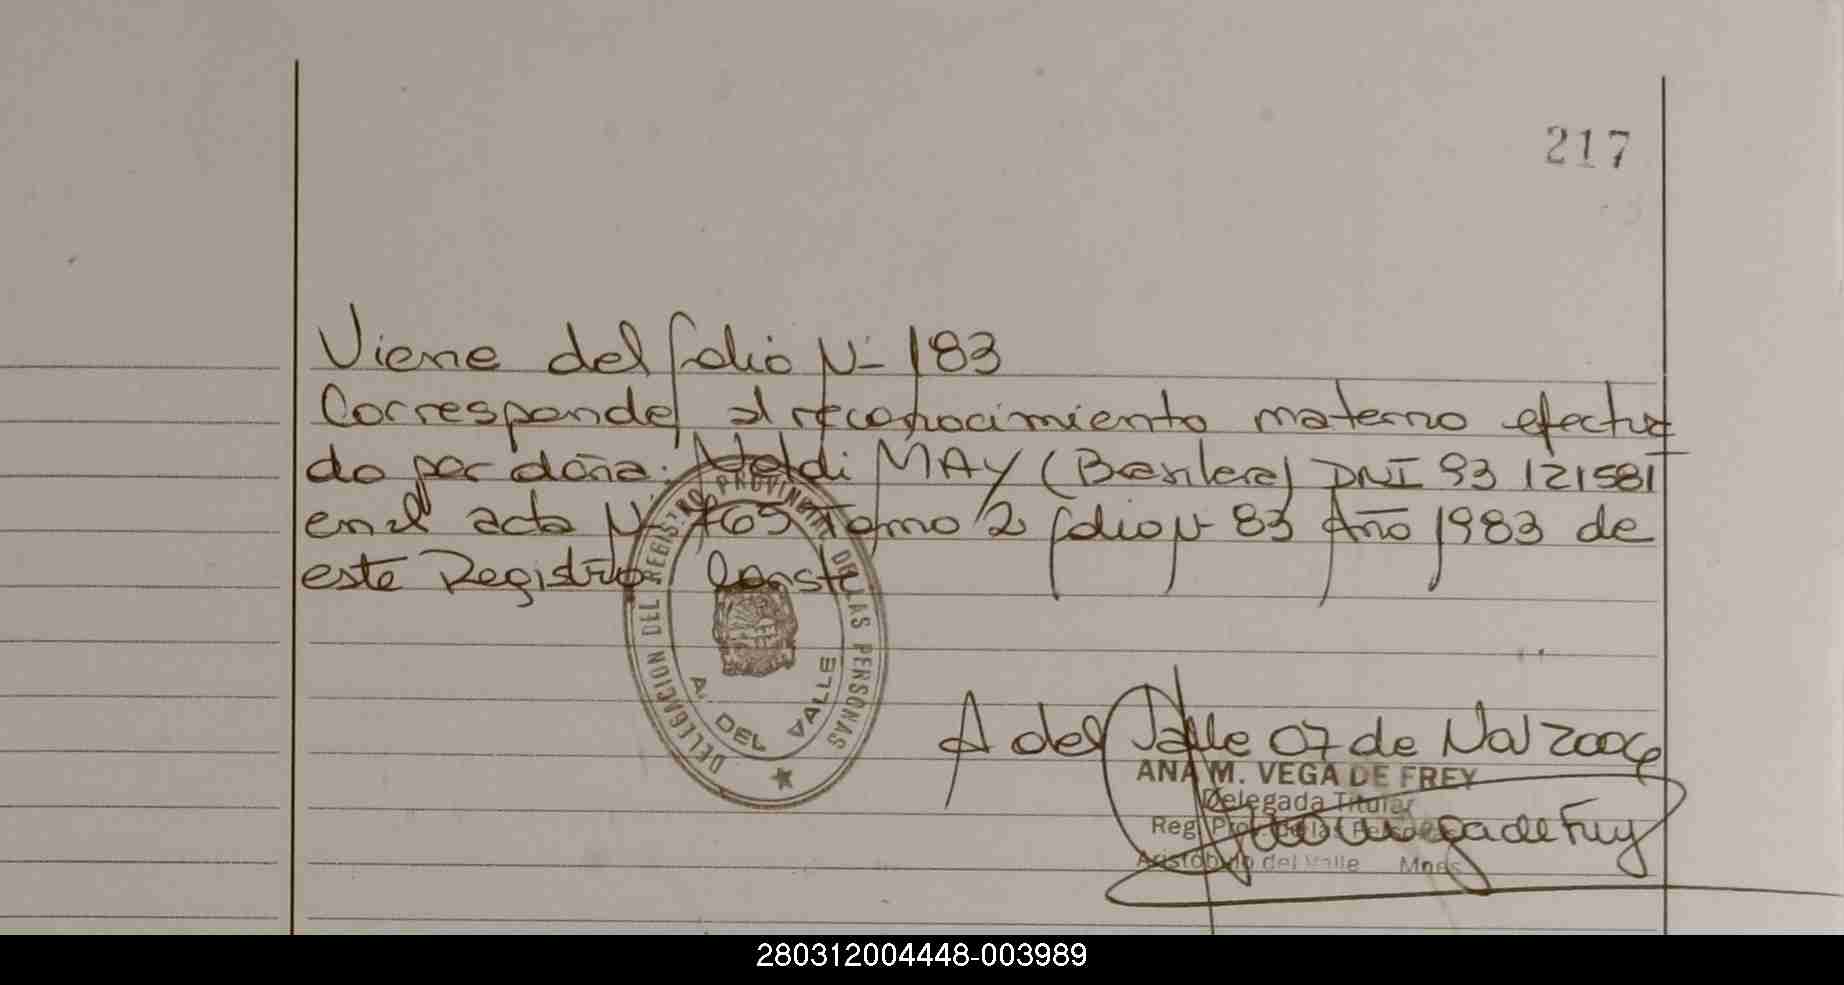 217
Viene del folio N- 183
Corresponde al reconocimiento materno efectua
do por doña: Neldi MAY (Brasilera) DNI 93 121581
en el acta N- 765 Tomo 2 folio N- 83 Año 1983 de
este Registro Conste
DELEGACION DEL REGISTRO PROVINCIAL DE LAS PERSONAS
A. DEL VALLE
A del Valle 07 de Nov 2006
ANA M. VEGA DE FREY
Delegada Titular
Reg. Prov. de las Personas
Aristóbulo del Valle Mnes
280312004448-003989